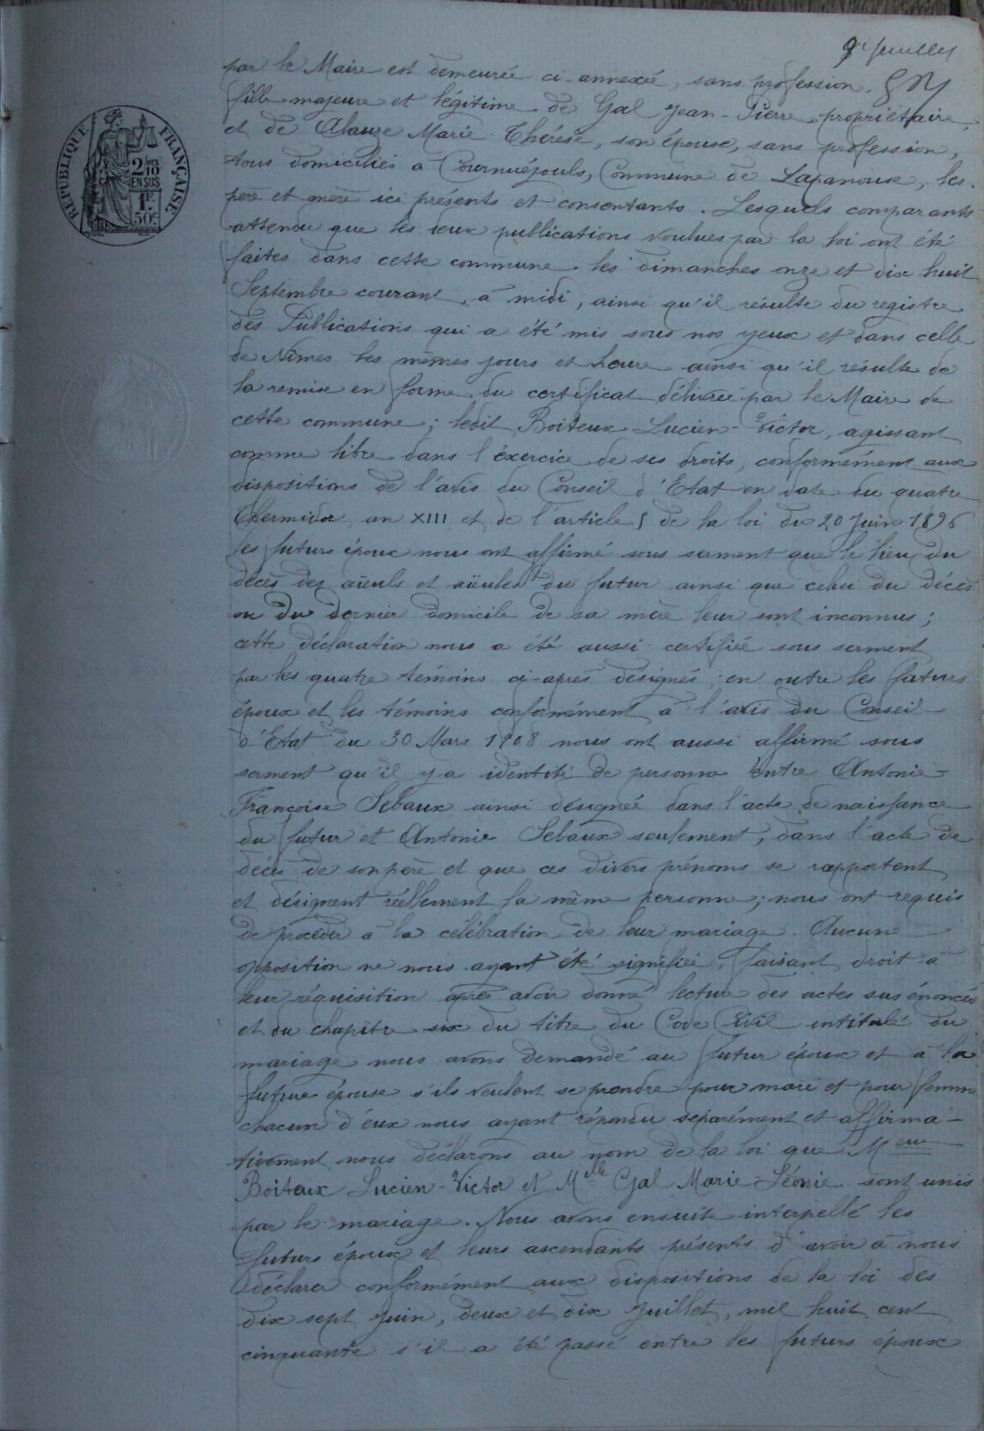 9e feuillet
par le Maire est demeurée ci-annexée, sans profession.
fille majeure et légitime de Gal Jean-Pierre, propriétaire,
et de Alauze Marie-Thérèse, son épouse, sans profession,
tous domiciliés à Cournuéjouls, Commune de Lapanouse, les
père et mère ici présents et consentants. Lesquels comparants
attendu que les deux publications voulues par la loi ont été
faites dans cette commune les dimanches onze et dix huit
Septembre courant, à midi, ainsi qu'il résulte du registre
des Publications qui a été mis sous nos yeux et dans celle
de Nîmes les mêmes jours et heure ainsi qu'il résulte de
la remise en forme du certificat délivrée par le Maire de
cette commune; ledit Boiteux Lucien-Victor, agissant
comme libre dans l'éxercice de ses droits, conformément aux
dispositions de l'avis du Conseil d'Etat en date du quatre
thermidor an XIII et de l'article 5 de la loi du 20 Juin 1896
les futurs époux nous ont affirmé sous serment que le lieu du
décès des aïeuls et aïeules du futur ainsi que celui du décès
ou du dernier domicile de sa mère leur sont inconnus;
cette déclaration nous a été aussi certifiée sous serment
par les quatre témoins ci-après désignés; en outre les futurs
époux et les témoins conformément à l'avis du Conseil
d'Etat du 30 Mars 1808 nous ont aussi affirmé sous
serment qu'il y a identité de personne entre Antonie-
Françoise Sebaux ainsi désignée dans l'acte de naissance
du futur et Antonie Sebaux seulement, dans l'acte de
décès de son père et que ces divers prénoms se rapportent
et désignent réellement la même personne; nous ont requis
de procéder à la célébration de leur mariage. Aucune
opposition ne nous ayant été signifiée, faisant droit à
leur réquisition après avoir donné lecture des actes sus énoncés
et du chapitre six du titre du Code Civil intitulé du
mariage nous avons demandé au futur époux et à la
future épouse s'ils veulent se prendre pour mari et pour femme
chacun d'eux nous ayant répondu séparément et affirma-
tivement nous déclarons au nom de la loi que M
Boiteux Lucien-Victor et Melle Gal Marie Léonie sont unis
par le mariage. Nous avons ensuite interpellé les
futurs époux et leurs ascendants présents d'avoir à nous
déclarer conformément aux dispositions de la loi des
dix sept Juin, deux et dix Juillet, mil huit cent
cinquante s'il a été passé entre les futurs époux
RÉPUBLIQUE FRANÇAISE
2 10
EN SUS
1F
50C